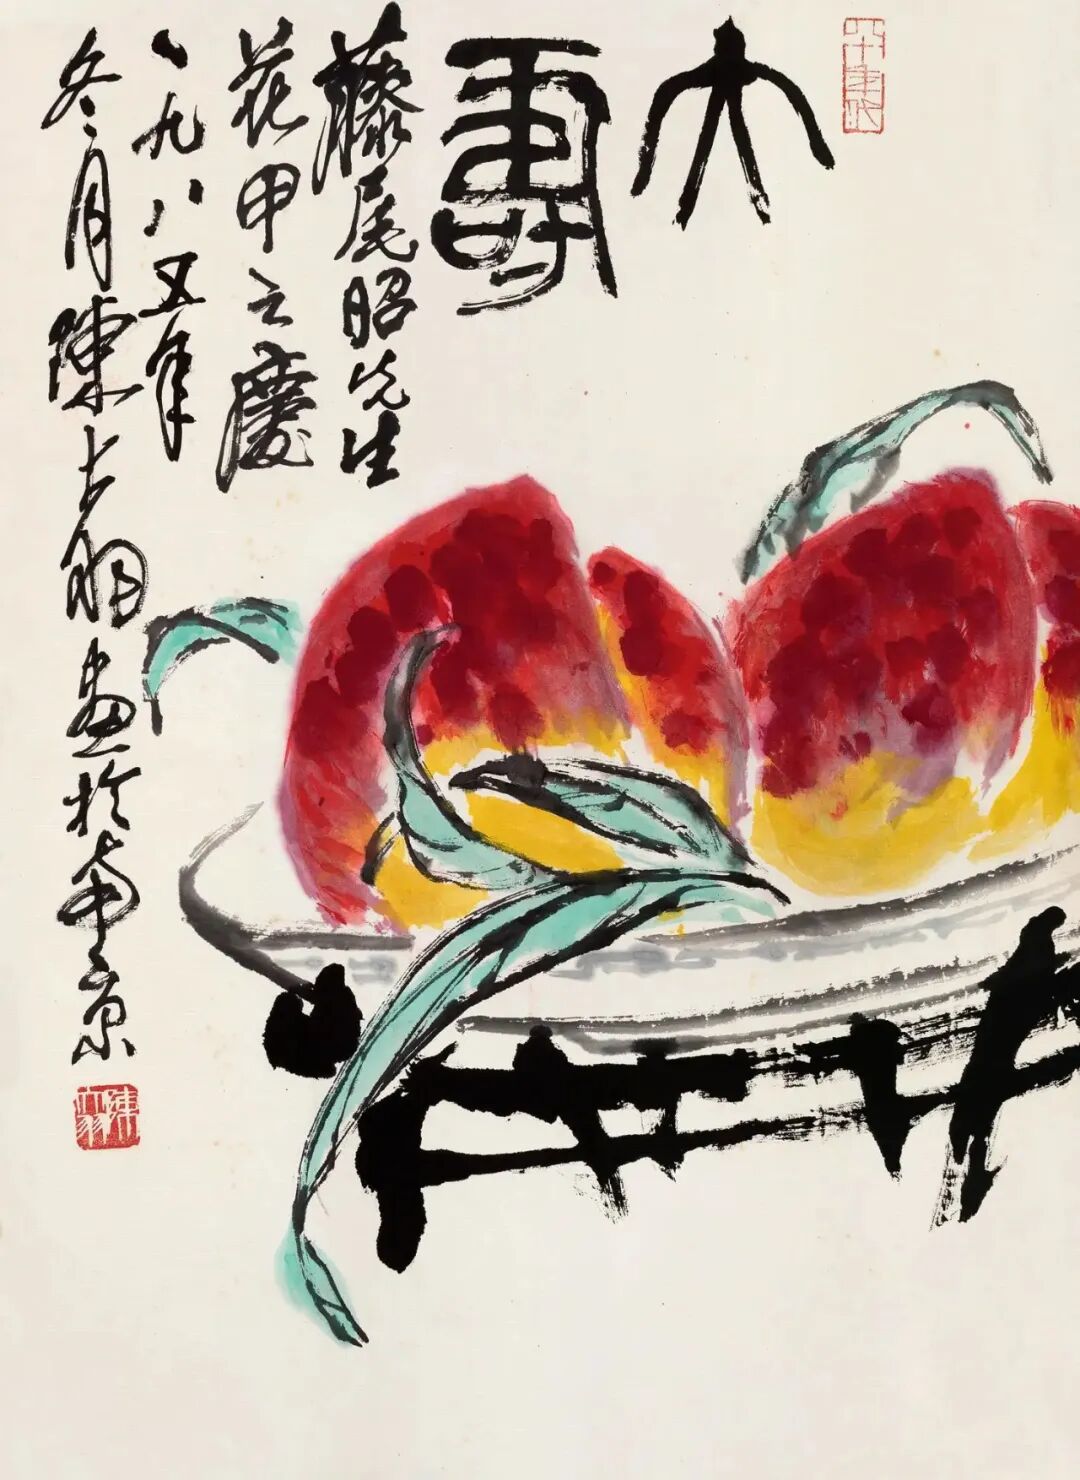 大壽
藤尾昭先生
花甲之慶
一九八五年
冬月陳大羽畫於南京
陳
大羽